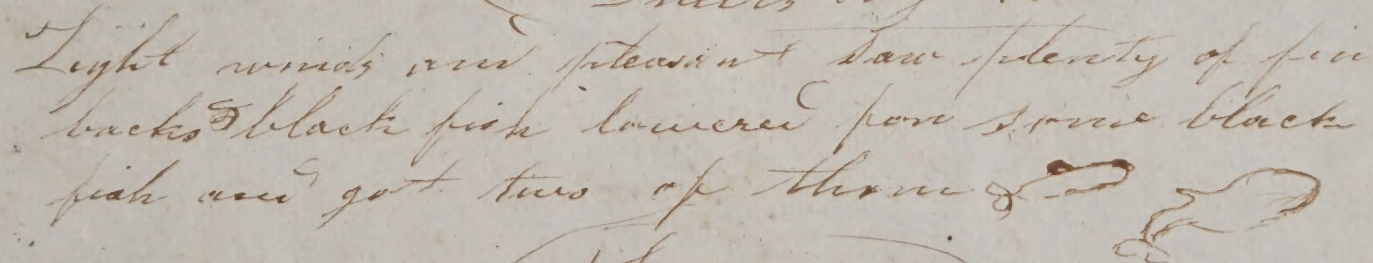 Light winds and pleasant Saw plenty of fin
backs & black fish lowered for some black
fish and got two of them